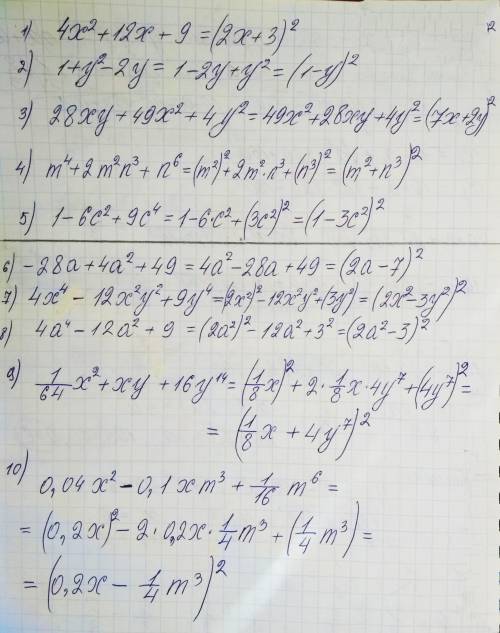 1) 4x² + 12x + 9 = (2x+3)²
2) 1+y²-2y = 1-2y+y² = (1-y)²
3) 28xy + 49x² + 4y² = 49x² + 28xy + 4y² = (7x+2y)²
4) m⁴ + 2m²n³ + n⁶ = (m²)² + 2m²·n³ + (n³)² = (m² + n³)²
5) 1-6c² + 9c⁴ = 1-6·c² + (3c²)² = (1-3c²)²
6) -28a + 4a² + 49 = 4a² - 28a + 49 = (2a-7)²
7) 4x⁴ - 12x²y² + 9y⁴ = (2x²)² - 12x²y² + (3y²)² = (2x² - 3y²)²
8) 4a⁴ - 12a² + 9 = (2a²)² - 12a² + 3² = (2a² - 3)²
9) 1/64 x² + xy + 16y¹⁴ = (1/8 x)² + 2·1/8 x·4y⁷ + (4y⁷)² =
= (1/8 x + 4y⁷)²
10) 0,04x² - 0,1xm³ + 1/16 m⁶ =
= (0,2x)² - 2·0,2x·1/4 m³ + (1/4 m³) =
= (0,2x - 1/4 m³)²